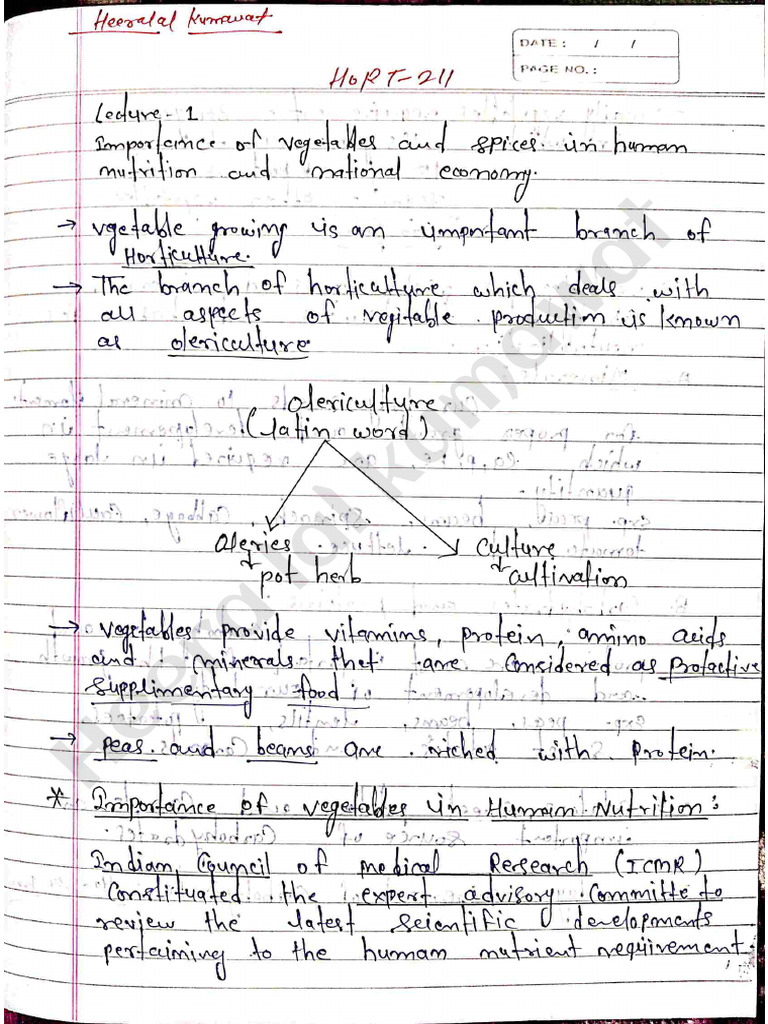 Heeralal Kumawat
DATE: / /
PAGE NO.:
HORT-211
Lecture-1
Importance of vegetables and spices in human
nutrition and national economy.
→ vgetable growing is an important branch of
Horticulture.
→ The branch of horticulture which deals with
all aspects of vegitable production is known
as olericulture
olericulture
(latin word)
oleries culture
↓ pot herb ↓ cultivation
→ vegetables provide vitamins, protein, amino acids
and minerals that are considered as protactive
supplimentary food.
→ peas and beans are riched with protein.
* Importance of vegetables in Human Nutrition:
Indian Council of medical Research (ICMR)
constituated the expert advisory committe to
review the latest scientific developments
pertaining to the human nutrient requirement.
Heeralal kumawat